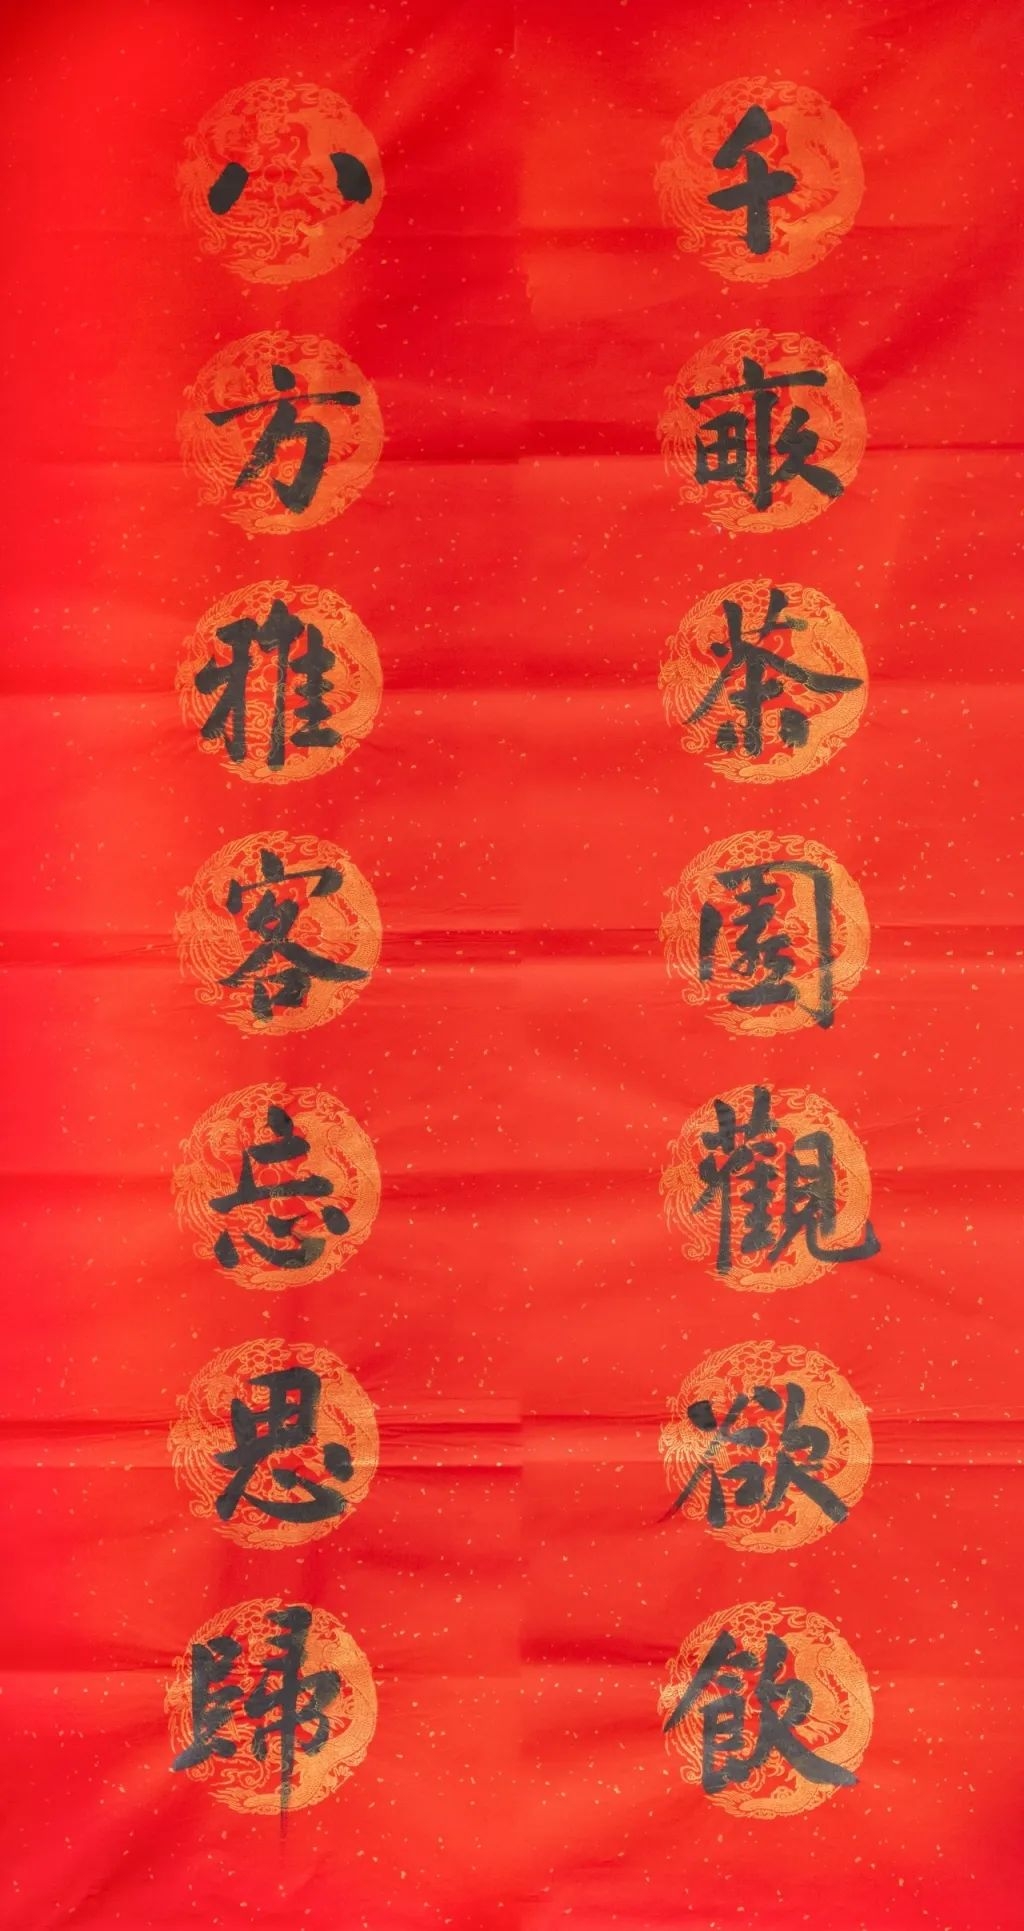 千畝茶園觀欲飲
八方雅客忘思歸